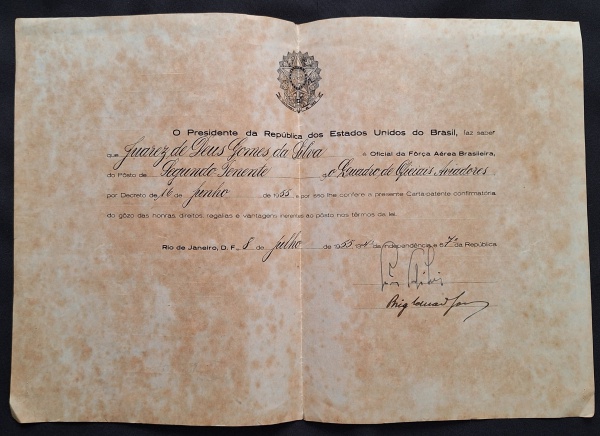 O Presidente da República dos Estados Unidos do Brasil, faz saber
que Juarez de Deus Gomes da Silva é Oficial da Fôrça Aérea Brasileira,
do Pôsto de Segundo Tenente do Quadro de Oficiais Aviadores
por Decreto de 16 de junho de 1955 e por isso lhe confere a presente Carta-patente confirmatória
do gôzo das honras, direitos, regalias e vantagens inerentes ao pôsto nos têrmos da lei.
Rio de Janeiro, D. F. 8 de julho de 1955 da Independência e 67º da República
Brig